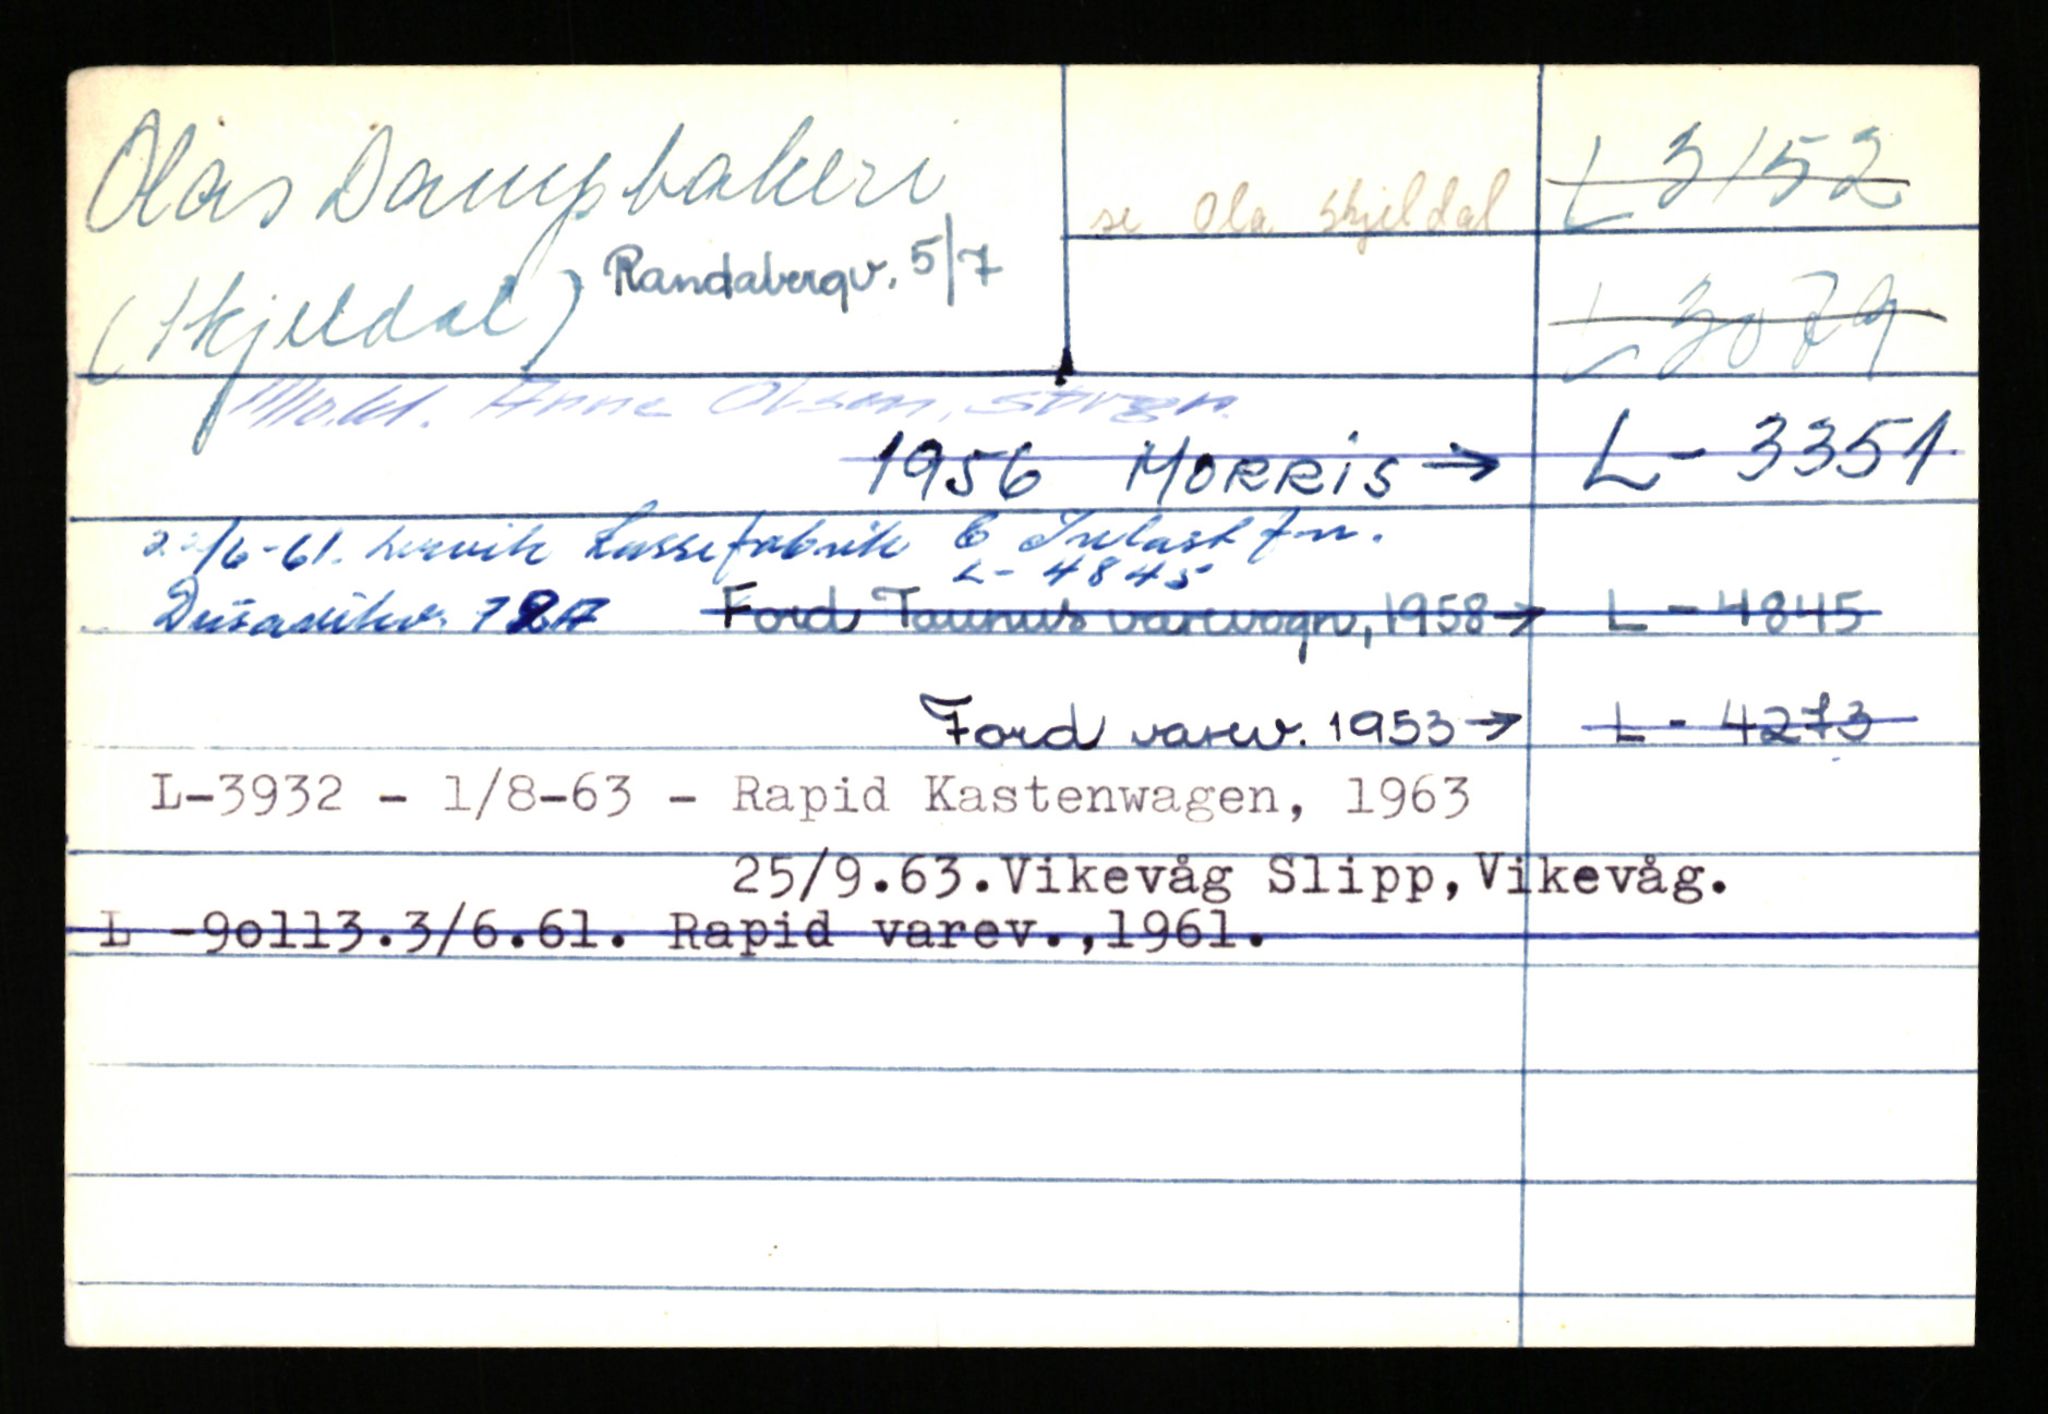 Olas Dampbakeri
se Ola Skjeldal
L 3152
(Skjeldal) Randabergv. 5/7
L 3079
Anne Olsen,
1956 MORRIS → L - 3351
22/6-61. Lervik Kassefabrik
L - 4845
Dusavikv. Ford Taunus varevogn, 1958 → L - 4845
Ford varev. 1953 → L - 4273
L-3932 - 1/8-63 - Rapid Kastenwagen, 1963
25/9.63.Vikevåg Slipp,Vikevåg.
L -9o113.3/6.61. Rapid varev.,1961.